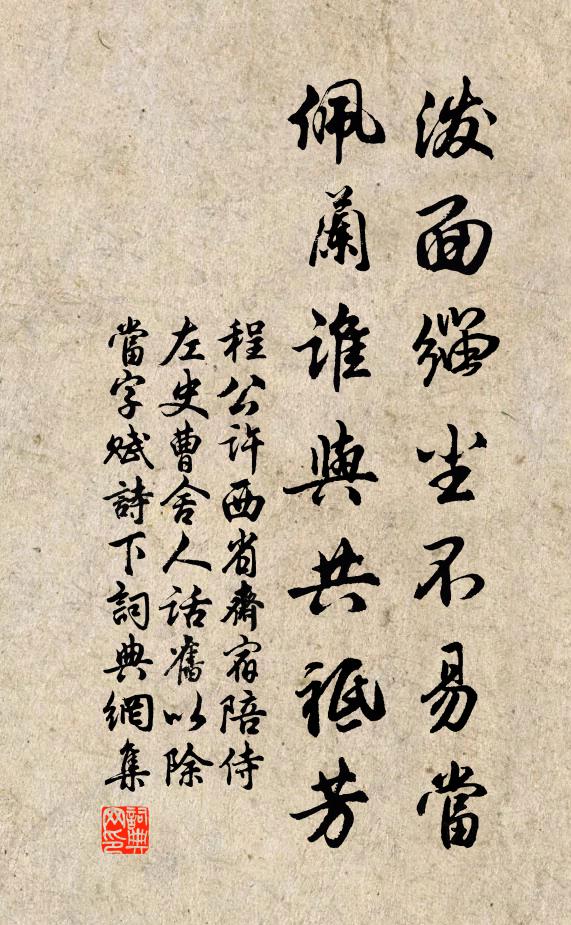 潑面緇尘不易當
佩蘭誰與共祗芳
程公許西省齋宿陪侍
左史曹舍人話舊以除
當字賦詩下詞典網集
詞典网印